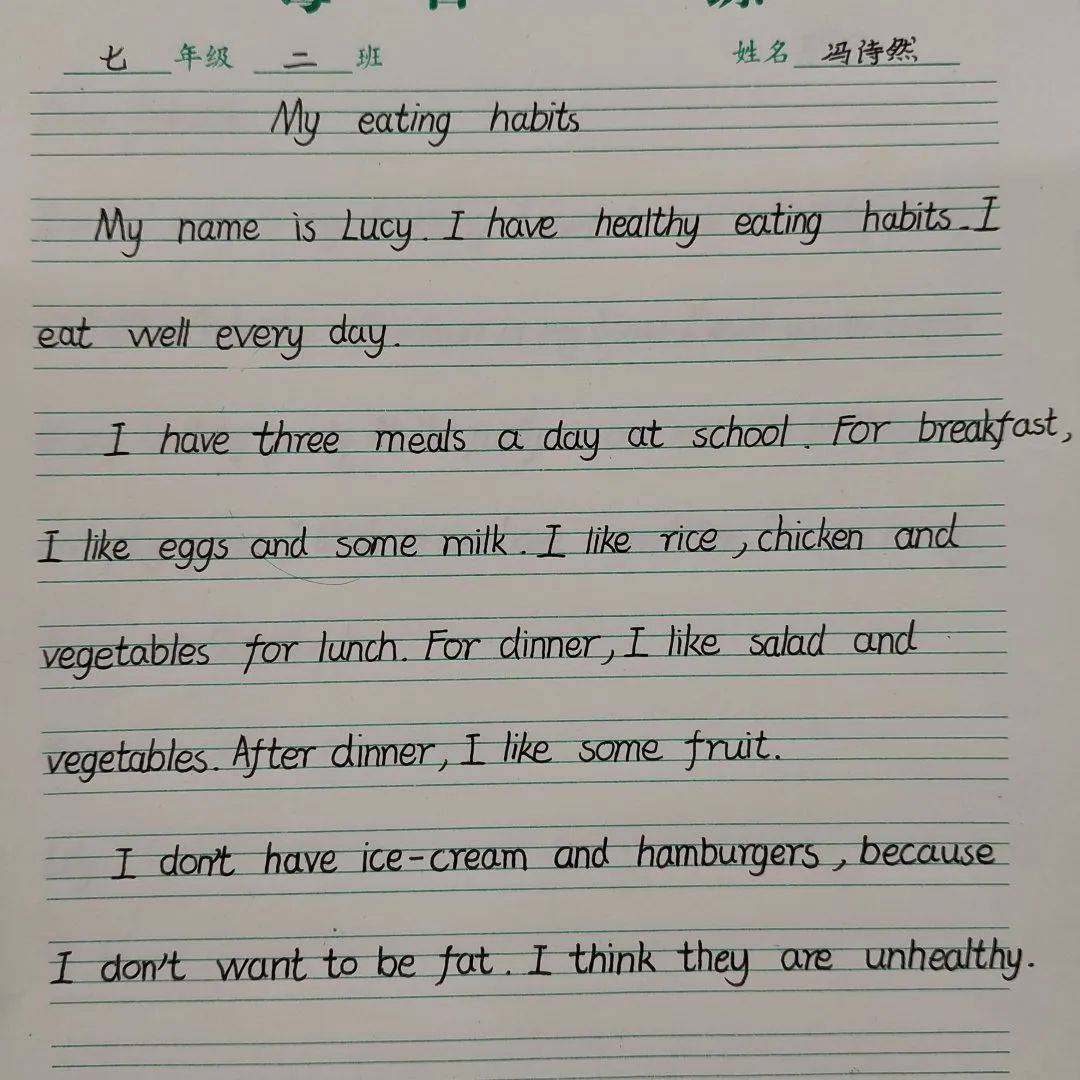 七 年级 二 班 姓名 冯诗然
My eating habits
My name is Lucy. I have healthy eating habits. I
eat well every day.
I have three meals a day at school. For breakfast,
I like eggs and some milk. I like rice, chicken and
vegetables for lunch. For dinner, I like salad and
vegetables. After dinner, I like some fruit.
I don't have ice-cream and hamburgers, because
I don't want to be fat. I think they are unhealthy.